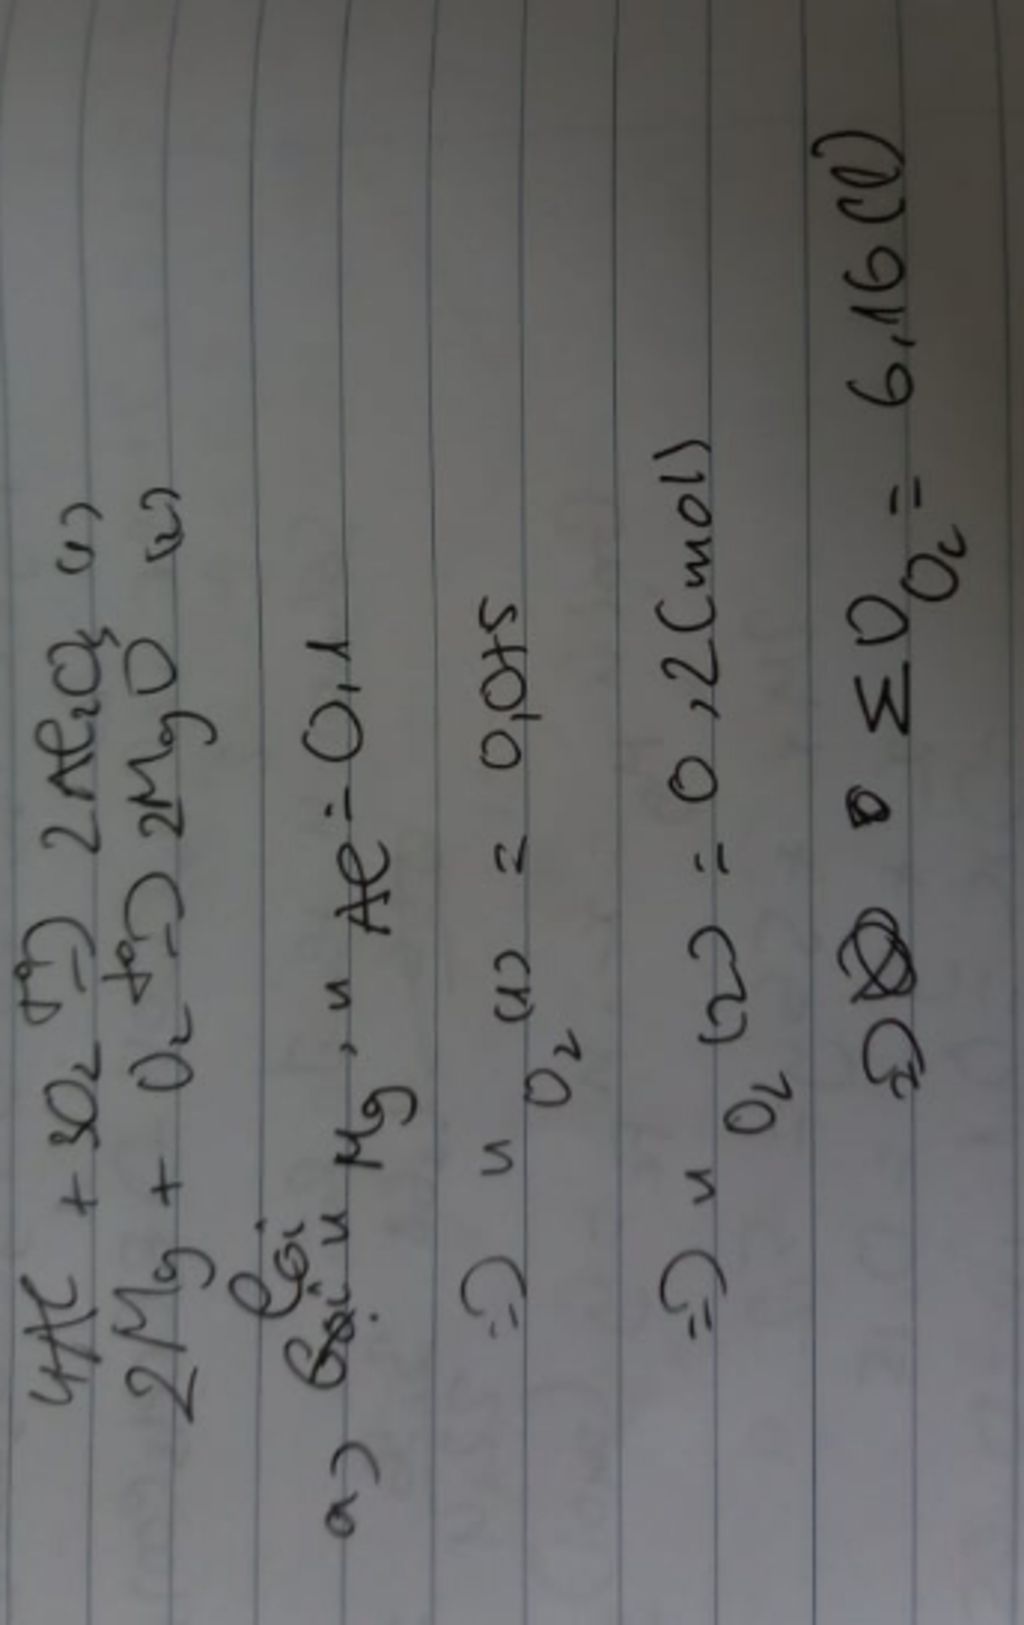 4Al + 3O₂ =t°> 2Al₂O₃ (1)
2Mg + O₂ =t°> 2MgO (2)
a) Gọi n Mg, n Al = 0,1
=> n O₂ (1) = 0,075
=> n O₂ (2) = 0,2 (mol)
=> Σ O₂ = 6,16 (l)